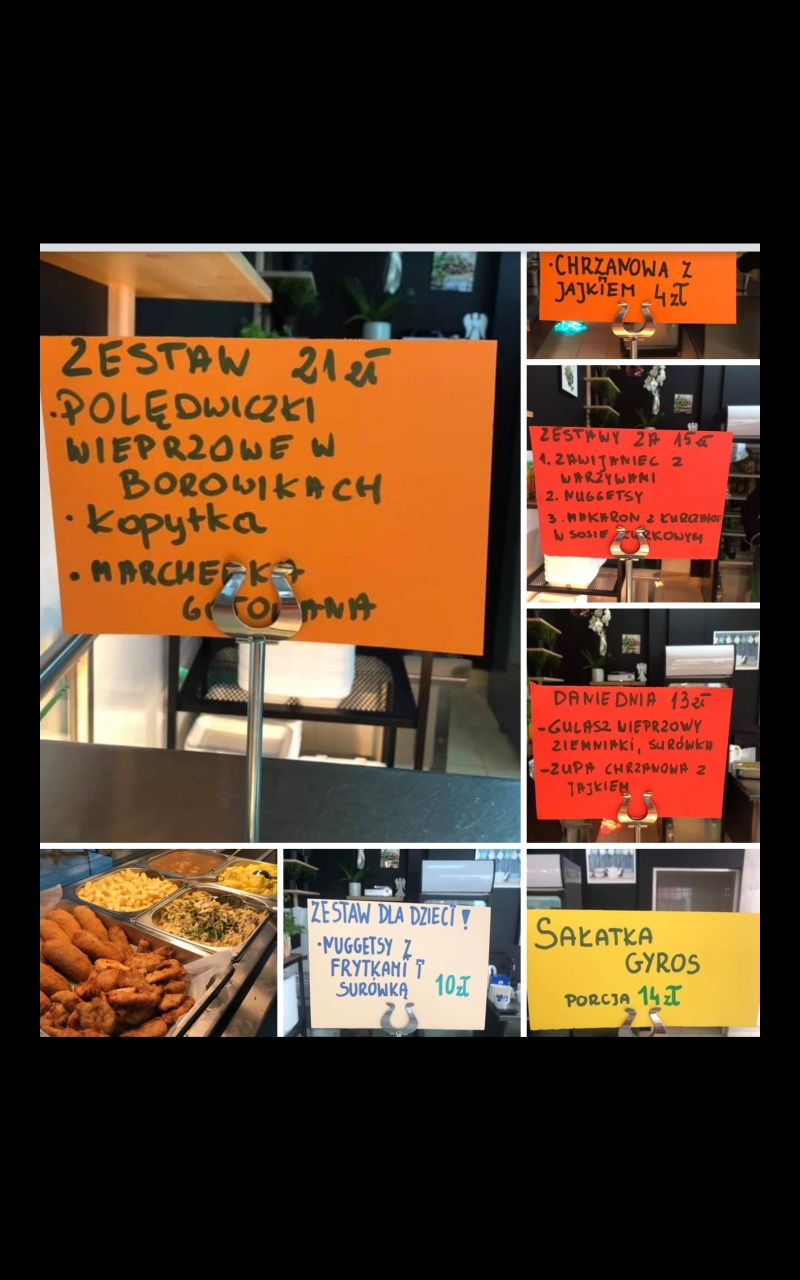 ZESTAW 21 zł
·POLĘDWICZKI
WIEPRZOWE W
BOROWIKACH
· Kopytka
· MARCHEWKA
GOTOWANA
·CHRZANOWA Z
JAJKIEM 4zł
ZESTAWY ZA 15zł
1. ZAWIJANIEC Z
WARZYWAMI
2. NUGGETSY
3. MAKARON Z KURCZAKIEM
W SOSIE KURKOWYM
DANIE DNIA 13zł
-GULASZ WIEPRZOWY
ZIEMNIAKI, SURÓWKA
-ZUPA CHRZANOWA Z
JAJKIEM
ZESTAW DLA DZIECI!
·NUGGETSY Z
FRYTKAMI I
SURÓWKĄ 10zł
SAŁATKA
GYROS
PORCJA 14zł